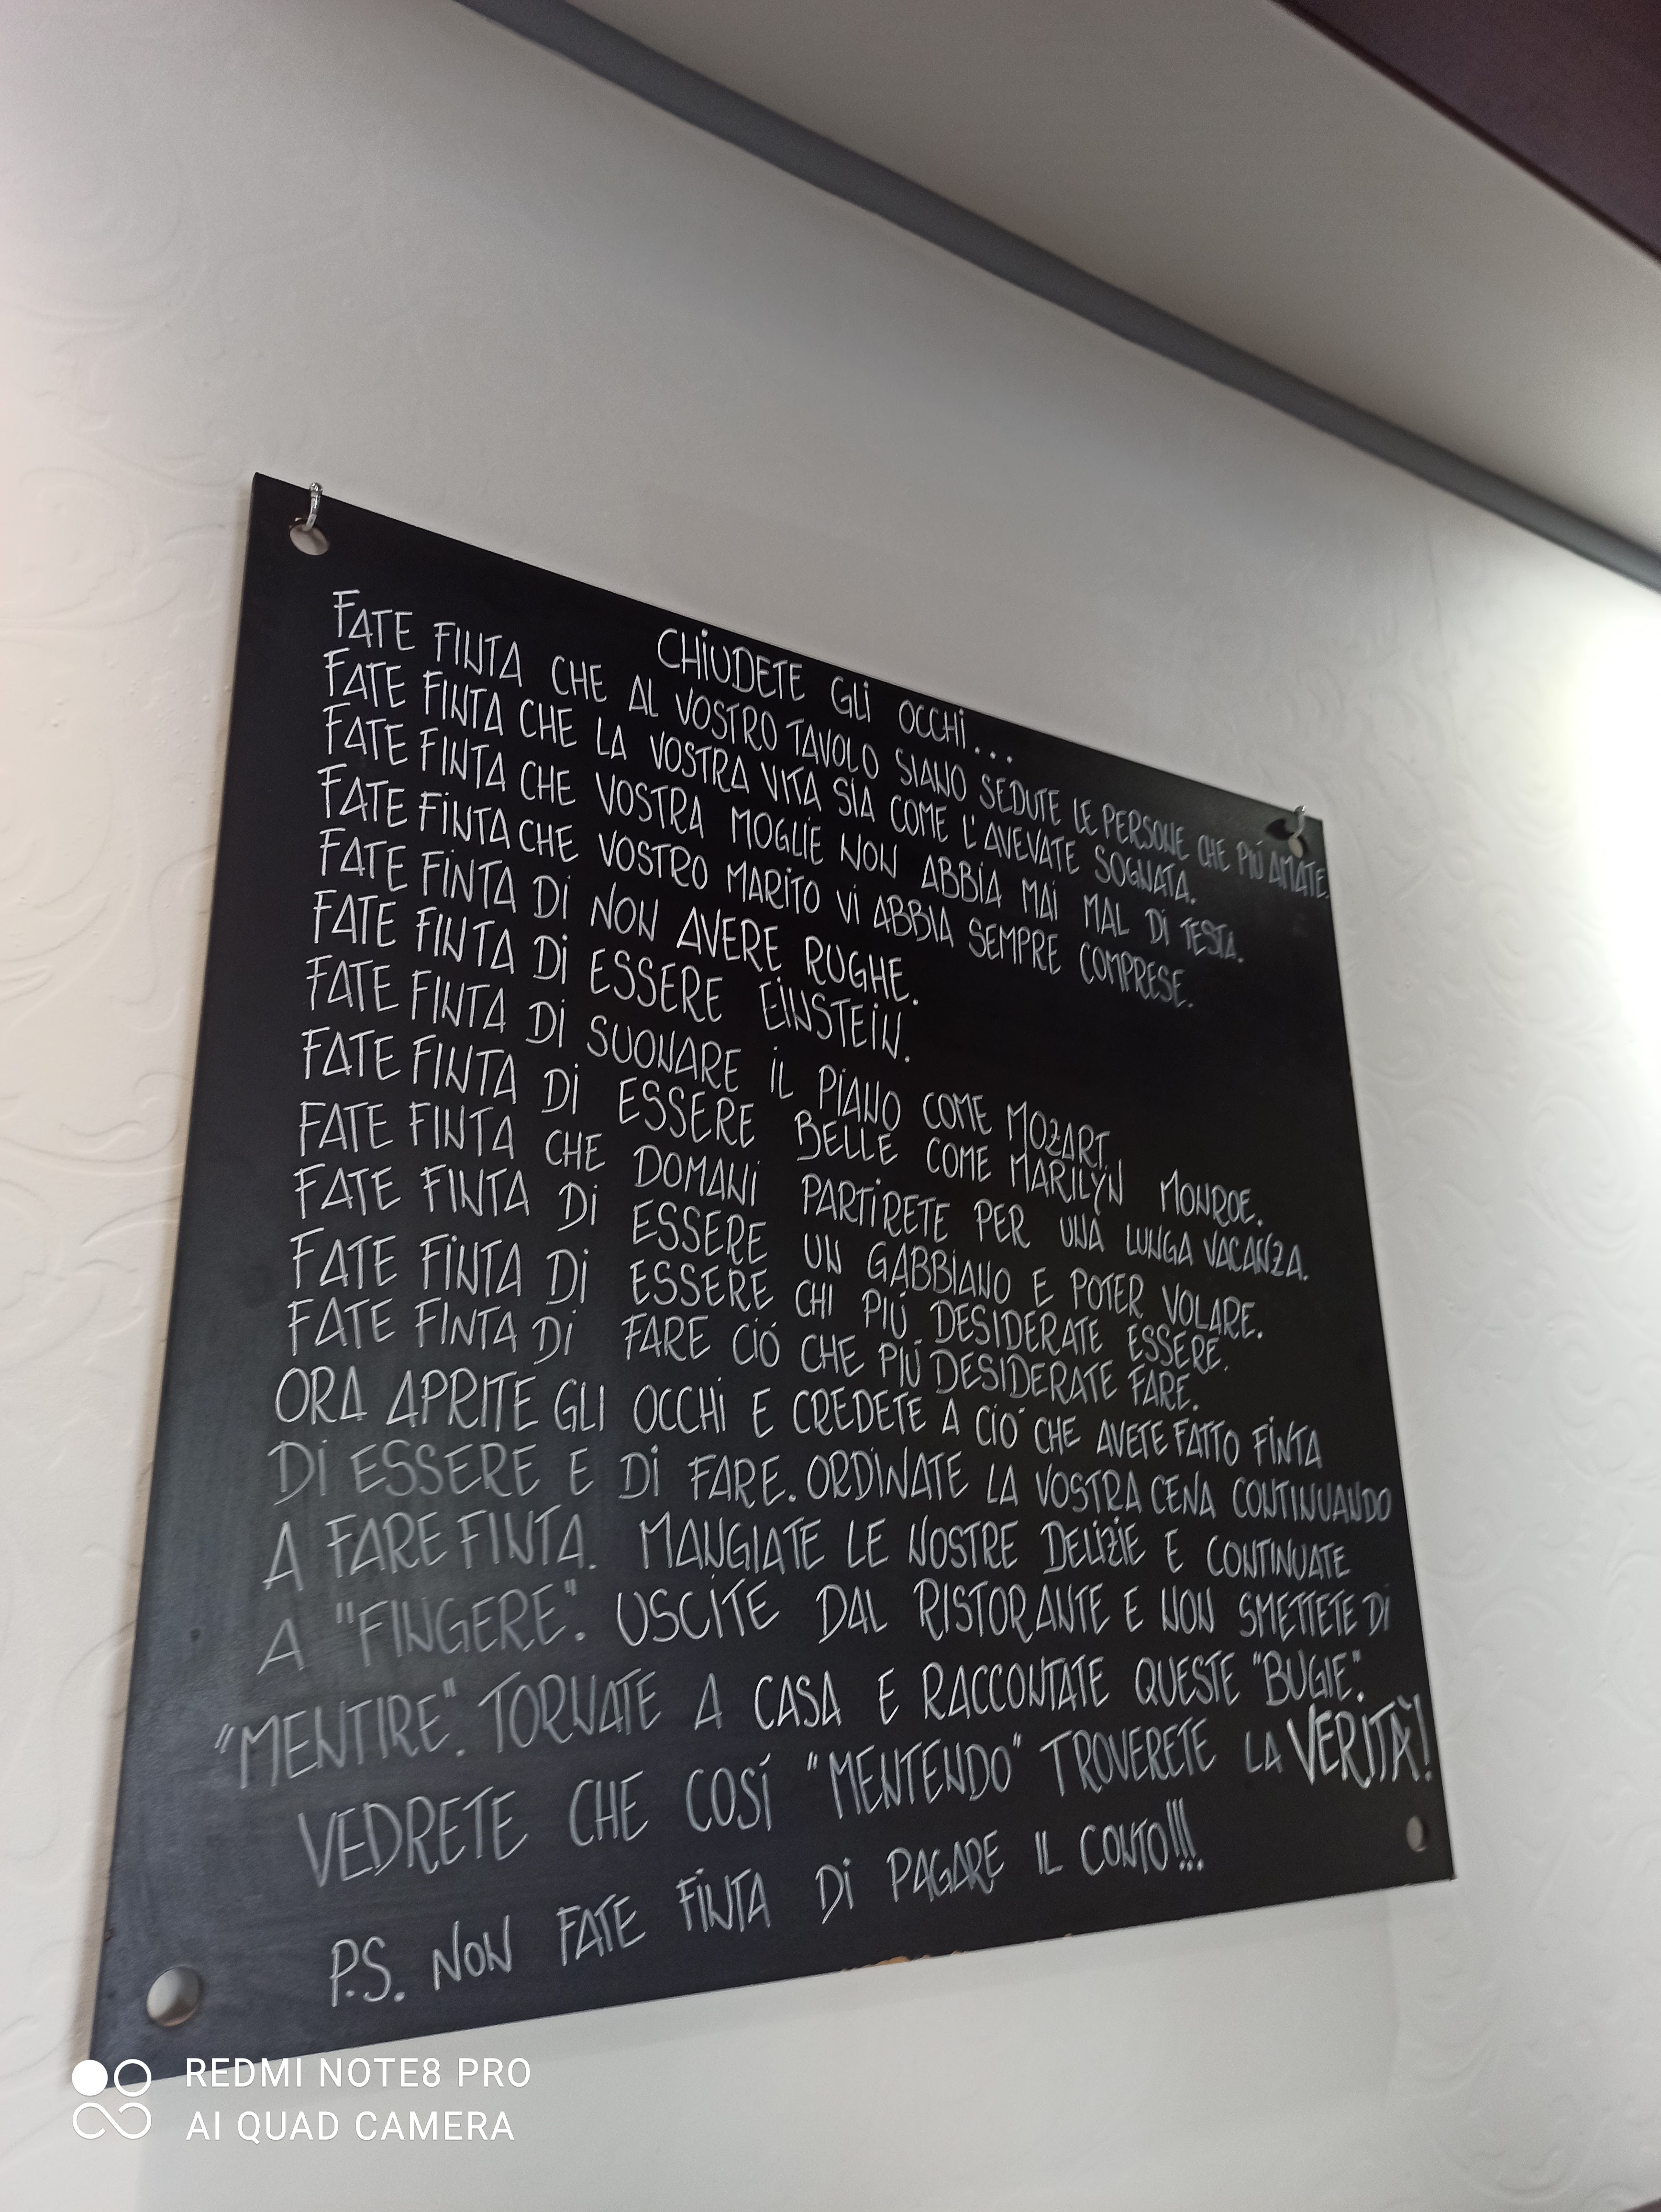 CHIUDETE GLI OCCHI...
FATE FINTA CHE AL VOSTRO TAVOLO SIANO SEDUTE LE PERSONE CHE PIÚ AMATE.
FATE FINTA CHE LA VOSTRA VITA SIA COME L'AVEVATE SOGNATA.
FATE FINTA CHE VOSTRA MOGLIE NON ABBIA MAI MAL DI TESTA.
FATE FINTA CHE VOSTRO MARITO VI ABBIA SEMPRE COMPRESE.
FATE FINTA DI NON AVERE RUGHE.
FATE FINTA DI ESSERE EINSTEIN.
FATE FINTA DI SUONARE IL PIANO COME MOZART.
FATE FINTA DI ESSERE BELLE COME MARILYN MONROE.
FATE FINTA CHE DOMANI PARTIRETE PER UNA LUNGA VACANZA.
FATE FINTA DI ESSERE UN GABBIANO E POTER VOLARE.
FATE FINTA DI ESSERE CHI PIÚ DESIDERATE ESSERE.
FATE FINTA DI FARE CIÓ CHE PIÚ DESIDERATE FARE.
ORA APRITE GLI OCCHI E CREDETE A CIÓ CHE AVETE FATTO FINTA
DI ESSERE E DI FARE. ORDINATE LA VOSTRA CENA CONTINUANDO
A FARE FINTA. MANGIATE LE NOSTRE DELIZIE E CONTINUATE
A "FINGERE". USCITE DAL RISTORANTE E NON SMETTETE DI
"MENTIRE". TORNATE A CASA E RACCONTATE QUESTE "BUGIE".
VEDRETE CHE COSÍ "MENTENDO" TROVERETE LA VERITÀ!
P.S. NON FATE FINTA DI PAGARE IL CONTO!!!
REDMI NOTE8 PRO
AI QUAD CAMERA